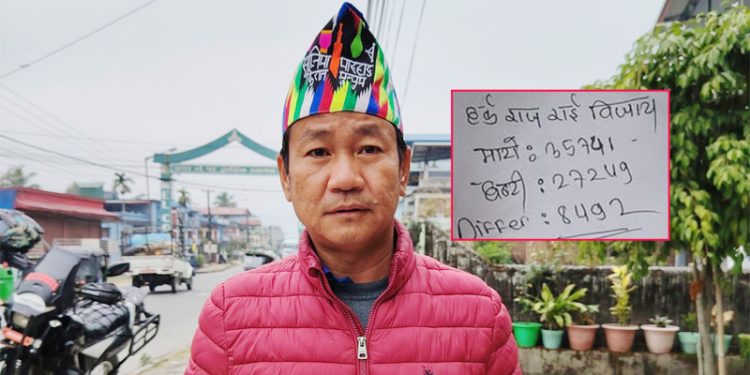 सुम्निमा पारुहाङ
किरात मुन्धुम
हर्क राज राई विजय
माटो : 35741
घन्टी : 27249
Differ : 8492